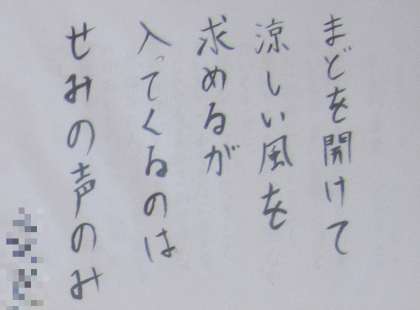 まどを開けて
涼しい風を
求めるが
入ってくるのは
せみの声のみ